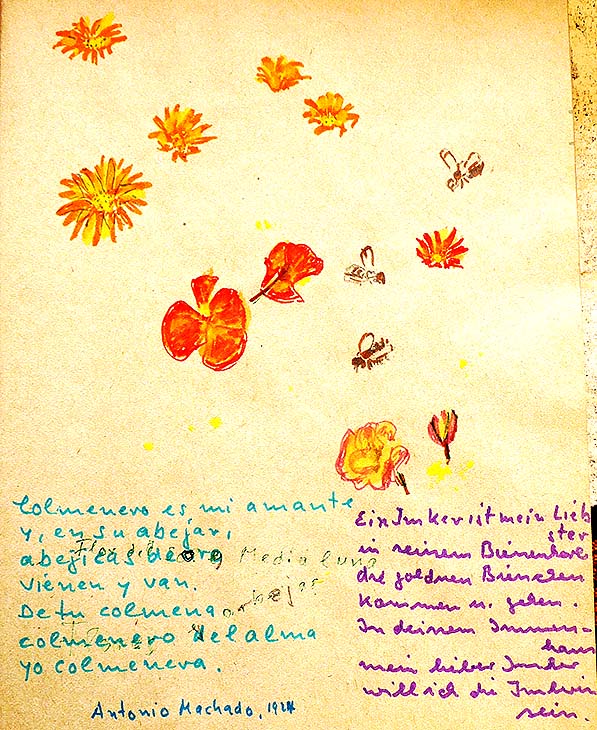 Colmenero es mi amante
y, en su abejar,
abejicas de oro
vienen y van.
De tu colmena
colmenero del alma
yo colmenera.
Antonio Machado, 1924
Media luna
abejas
Ein Imker ist mein Lieb
ster
in seinem Bienenkorb
die goldnen Bienchen
kommen u. gehen.
In deinem Immen-
haus
mein lieber Imker
will ich die Imkerin
sein.